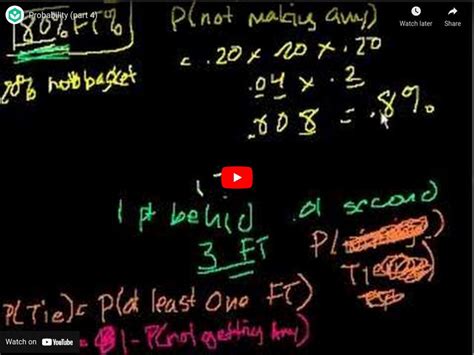 Probability (part 4)
Watch later
Share
80% FT%
20% not basket
P(not making any)
= .20 x .20 x .20
.04 x .2
.008 = .8%
1 pt behind .01 second
3 FT
P(
Tie
P(Tie)= P(at least one FT)
= 1-P(not getting any)
Watch on YouTube